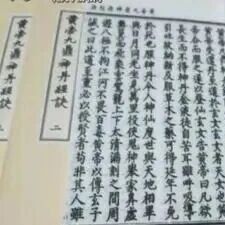 玄女者天女也黃
遂以登仙玄女告黃帝曰凡欲
長生而不得神丹金液徒自苦耳雖呼吸導
引吐故納新及服草木之藥可得延年不免
於死也服神丹令人神仙度世與天地相畢
與日月同光坐見萬里役使鬼神舉家昇虛
無翼而飛乘雲駕龍上下太清漏刻之間周
遊八極不拘江河不畏百毒黃帝以傳玄子
誡之曰此道至重必以授賢者苟非其人雖
黃帝九鼎神丹經訣 二
黃帝九鼎神丹經訣